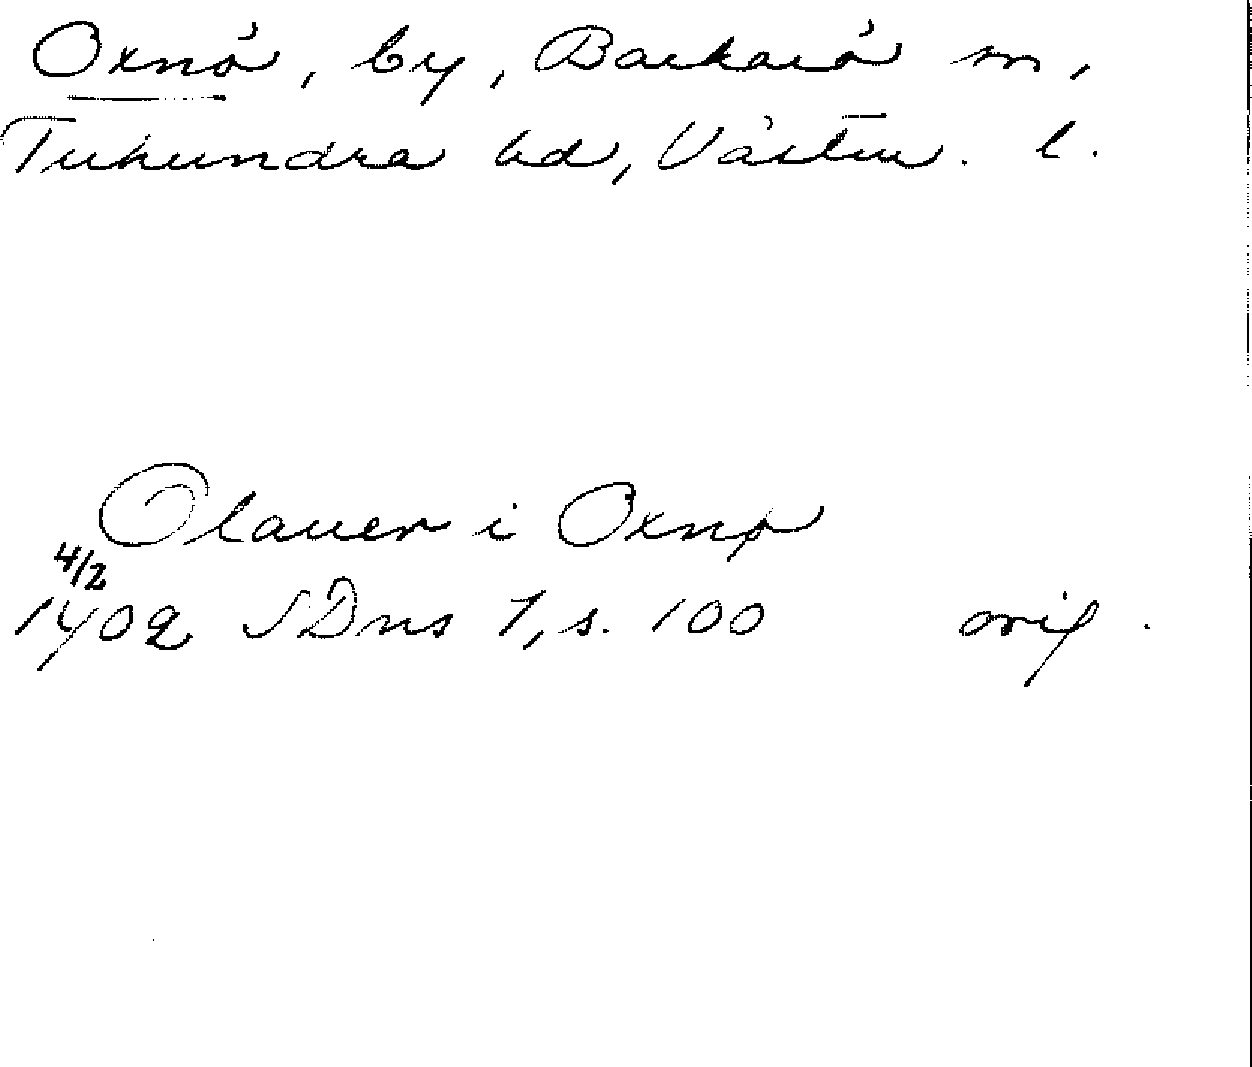 Oxnö, by, Barkarö sn,
Tuhundra hd, Västm. l.
Olauer i Oxnø
4/2
1402 SDns 1, s. 100 orig.